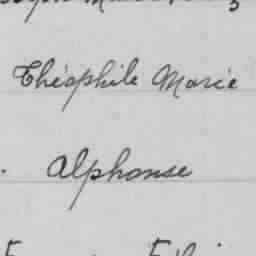 Théophile Marie
Alphonse